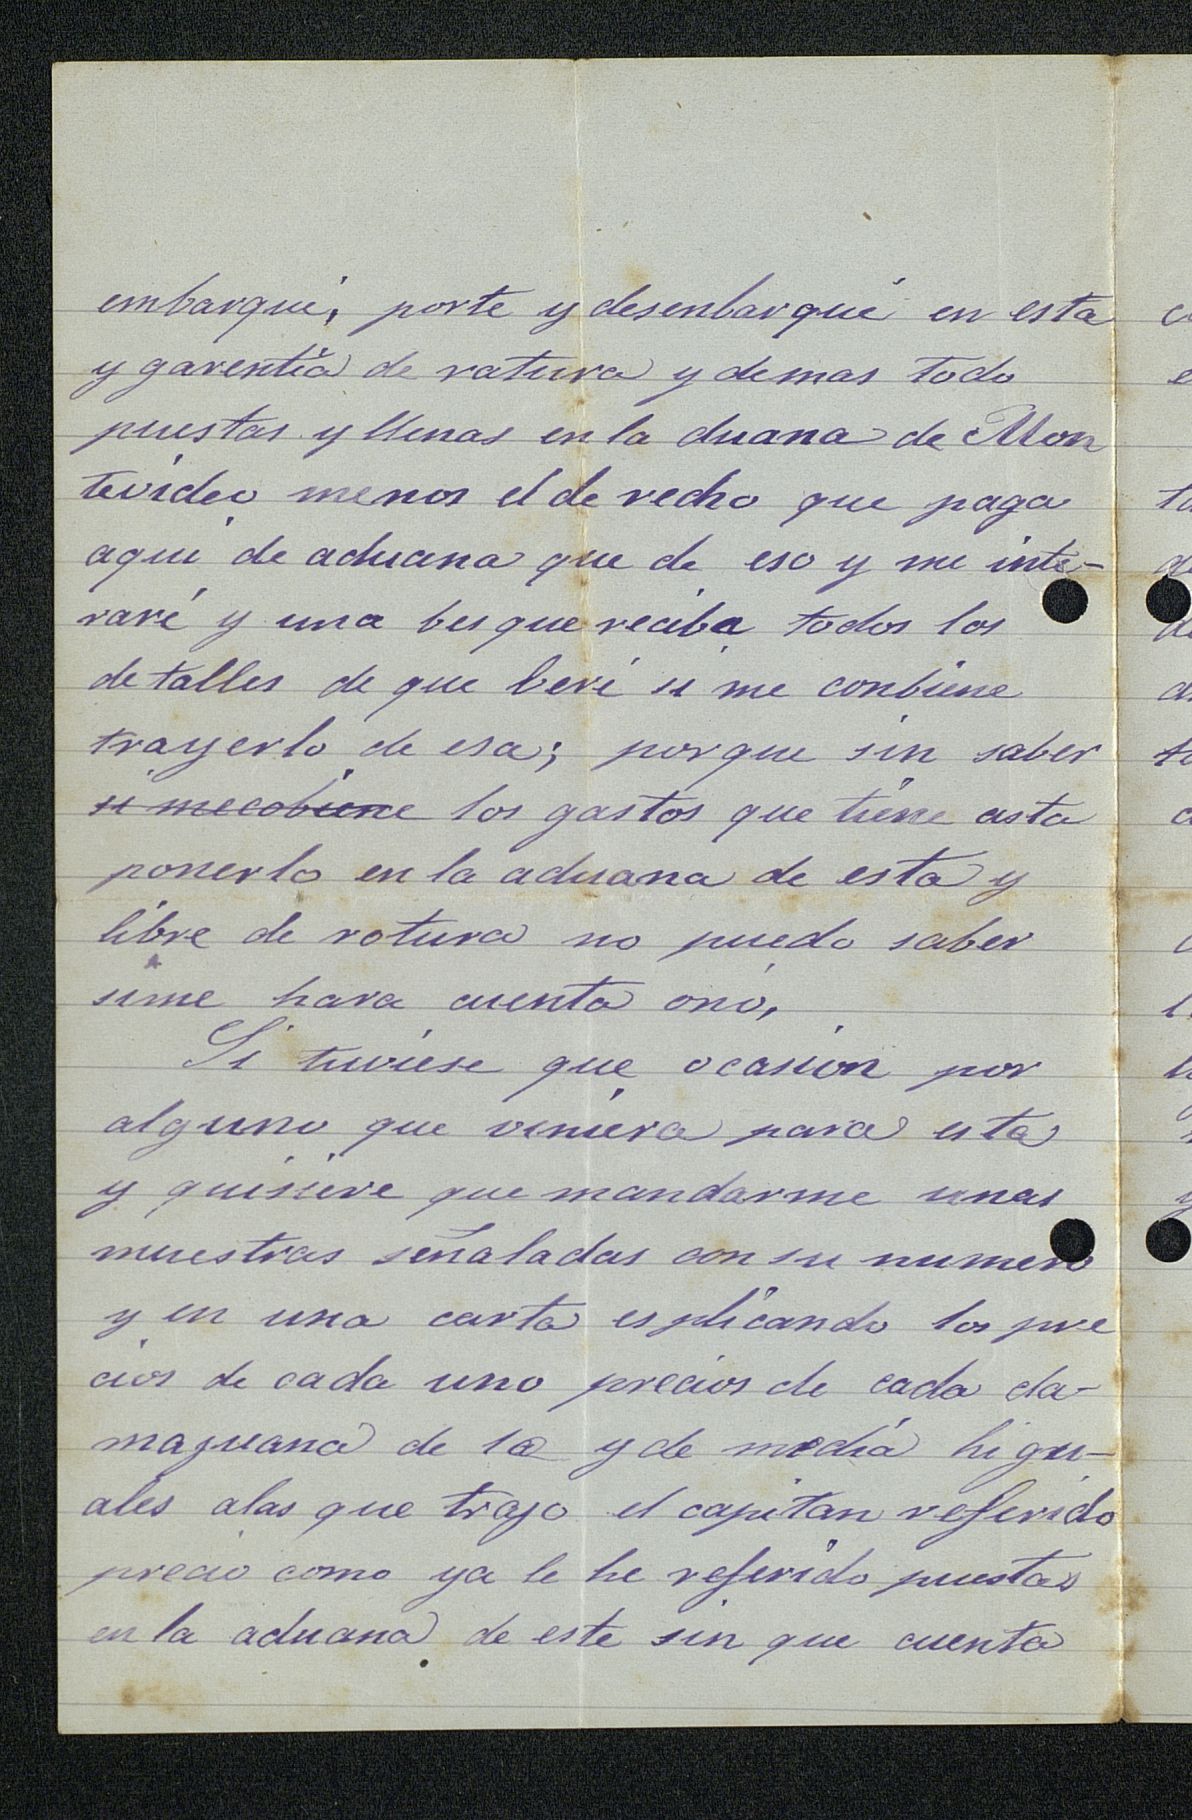 embarqué, porte y desenbarqué en esta
y garentia de ratura y demas todo
puestas y llenas en la duana de Mon
tevideo menos el de recho que paga
aqui de aduana que de eso y me inte-
raré y una bes que reciba todos los
de talles de que beré si me conbiene
trayerlo de esa; porque sin saber
si mecobiene los gastos que tiene asta
ponerlo en la aduana de esta y
libre de rotura no puedo saber
sime hara cuenta onó,
Si tuviese que ocasion por
alguno que veniera para esta
y quisiere que mandarme unas
muestras señaladas con su numero
y en una carta esplicando los pre
cios de cada uno precios de cada da-
majuana de 1a y de media higu-
ales alas que trajo el capitan referido
precio como ya le he referido puestas
en la aduana de este sin que cuenta